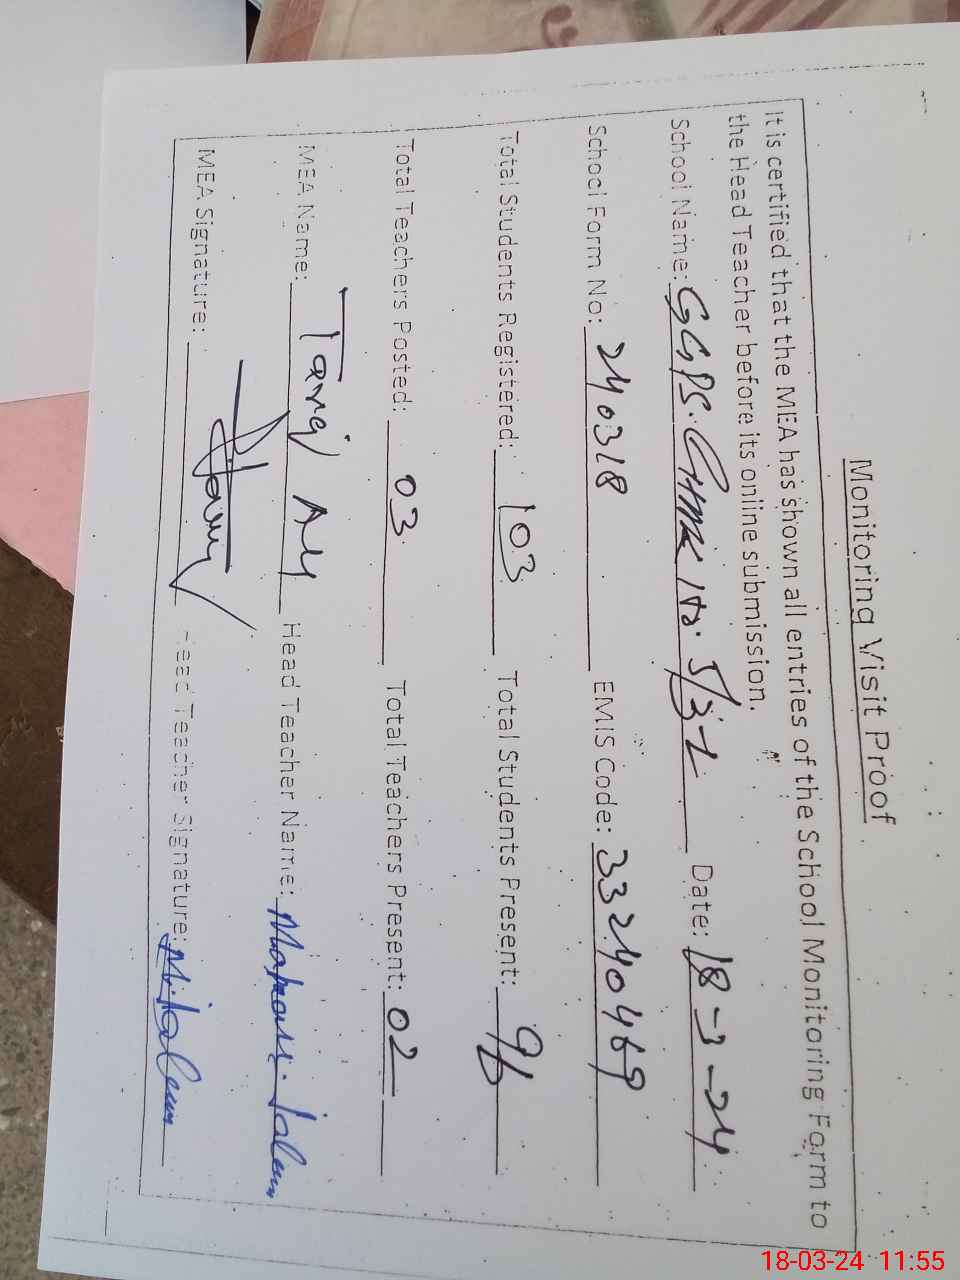 Monitoring Visit Proof
It is certified that the MEA has shown all entries of the School Monitoring Form to
the Head Teacher before its online submission.
School Name: GGPS. CHAK No. 5/3-L Date: 18-3-24
School Form No: 240318 EMIS Code: 33240469
Total Students Registered: 103 Total Students Present: 96
Total Teachers Posted: 03 Total Teachers Present: 02
MEA Name: Tariq Ali Head Teacher Name:
MEA Signature: Head Teacher Signature:
18-03-24 11:55